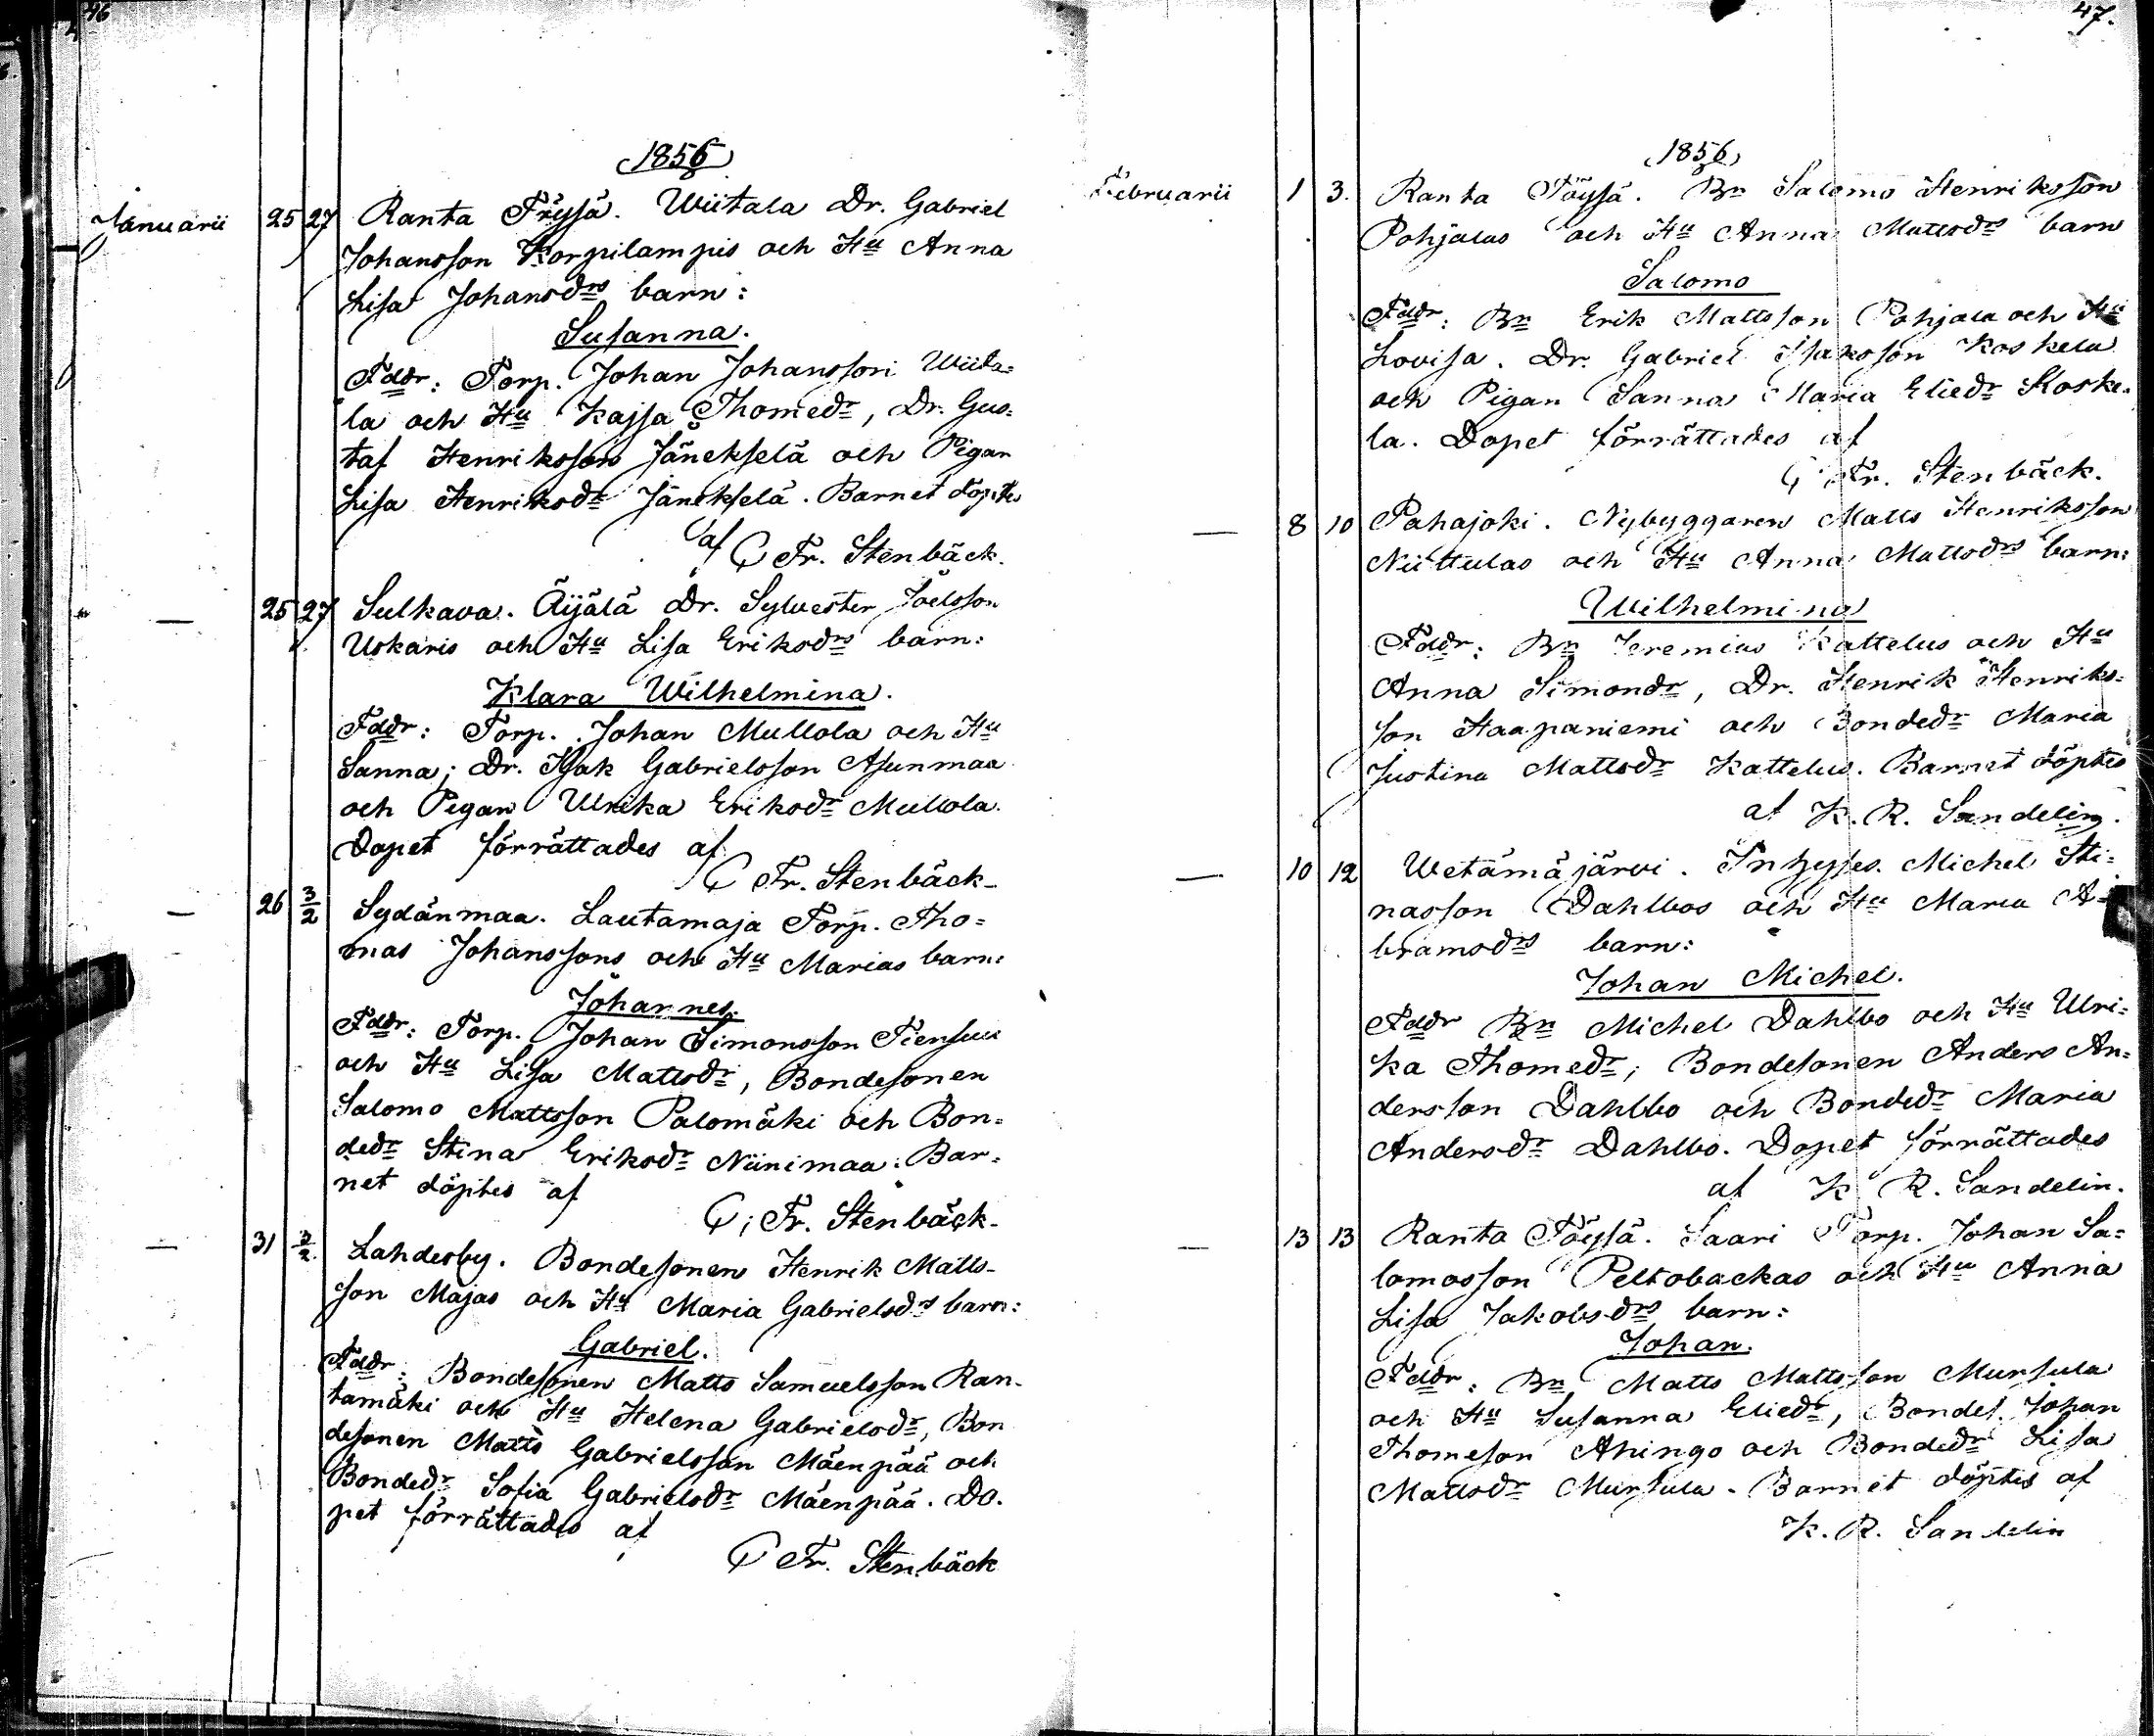 46
1856
Januarii 25 27 Ranta Töysä. Wiitala Dr. Gabriel
Johansson Korpilampis och Hu Anna
Lisa Johansdrs barn:
Susanna.
Fddr: Torp. Johan Johansson Wiita=
la och Hu Kajsa Thomedr, Dr. Gus=
taf Henriksson Jänekselä och Pigan
Lisa Henriksdr Jänekselä. Barnet döptes
af C Fr. Stenbäck.
— 25 27 Sulkava. Äijälä Dr. Sylvester Joelsson
Uskaris och Hu Lisa Eriksdrs barn:
Klara Wilhelmina.
Fddr: Torp. Johan Mullola och Hu
Sanna; Dr. Isak Gabrielsson Asunmaa
och Pigan Ulrika Eriksdr Mullola.
Dopet förrättades af
C Fr. Stenbäck
— 26 3/2 Sydänmaa. Lautamaja Torp. Tho=
mas Johanssons och Hu Marias barn:
Johannes.
Fddr: Torp. Johan Simonsson Tiensuu
och Hu Lisa Mattsdr, Bondesonen
Salomo Mattsson Palomäki och Bon=
dedr Stina Eriksdr Niinimaa. Bar=
net döptes af
C; Fr. Stenbäck
— 31 3/2. Lahdesby. Bondesonen Henrik Matts-
son Majas och Hu Maria Gabrielsdrs barn:
Gabriel.
Fddr: Bondesonen Matts Samuelsson Ran-
tamäki och Hu Helena Gabrielsdr, Bon
desonen Matts Gabrielsson Mäenpää och
Bondedr Sofia Gabrielsdr Mäenpää. Do.
pet förrättades af
C Fr. Stenbäck
47.
1856
Februarii 1 3. Ranta Töysä. Bn Salomo Henriksson
Pohjalas och Hu Anna Mattsdrs barn
Salomo
Fddr: Bn Erik Mattsson Pohjala och Hu
Lovisa. Dr. Gabriel Isaksson Koskela
och Pigan Sanna Maria Eliedr Koske=
la. Dopet förrättades af
C Fr. Stenbäck.
— 8 10 Pahajoki. Nybyggaren Matts Henriksson
Niittulas och Hu Anna Mattsdrs barn:
Wilhelmina
Fddr: Bn Jeremias Kattelus och Hu
Anna Simondr, Dr. Henrik Henriks=
son Haapaniemi och Bondedr Maria
Justina Mattsdr Kattelus. Barnet döptes
af K. R. Sandelin.
— 10 12 Wetämäjärvi. Inhyses. Michel Sti=
nasson Dahlbos och Hu Maria A=
bramsdrs barn:
Johan Michel.
Fddr Bn Michel Dahlbo och Hu Ulri=
ka Thomedr; Bondesonen Anders An=
dersson Dahlbo och Bondedr Maria
Andersdr Dahlbo. Dopet förrättades
af K R. Sandelin.
— 13 13 Ranta Töysä. Saari Torp. Johan Sa=
lomosson Peltobackas och Hu Anna
Lisa Jakobsdrs barn:
Johan.
Fddr: Bn Matts Mattsson Mursula
och Hu Susanna Eliedr, Bondes. Johan
Thomeson Ahingo och Bondedr Lisa
Mattsdr Mursula. Barnet döptes af
K. R. Sandelin